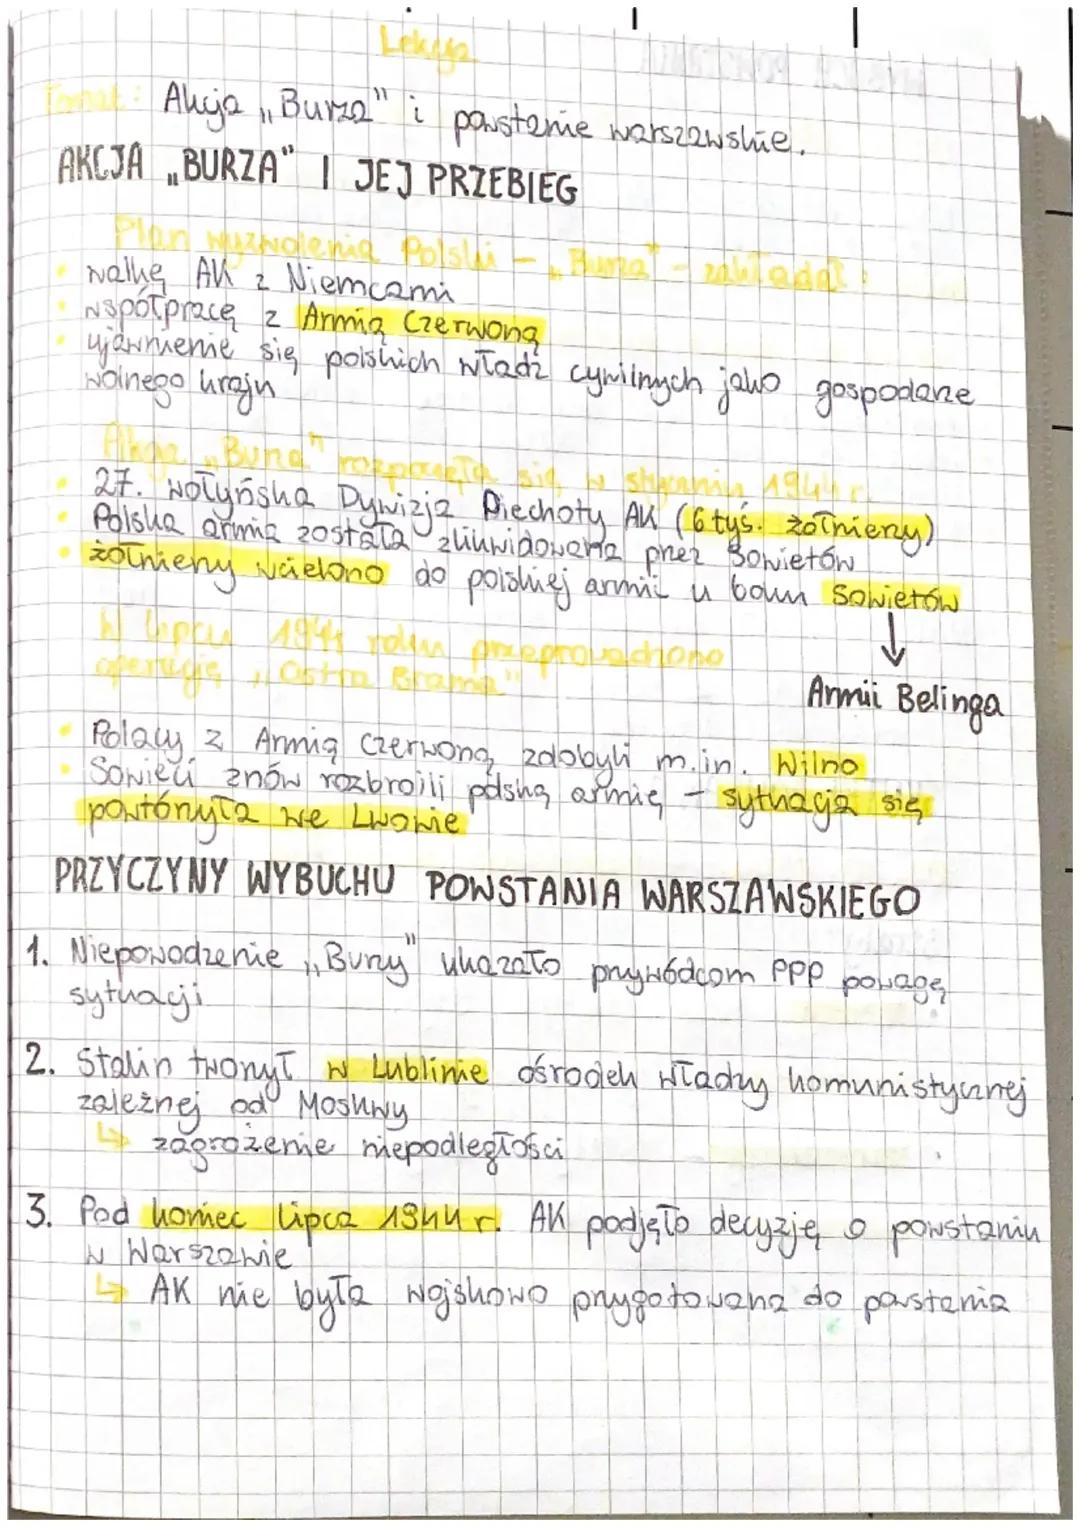 Lekcja
Temat: Akcja „Burza" i powstanie warszawskie.
AKCJA „BURZA" I JEJ PRZEBIEG
Plan wyzwolenia Polski – „Burza" – zakładał:
• walkę AK z Niemcami
• współpracę z Armią Czerwoną
• ujawnienie się polskich władz cywilnych jako gospodarze
wolnego kraju
Akcja „Burza" rozpoczęła się w styczniu 1944 r.
• 27. Wołyńska Dywizja Piechoty AK (6 tyś. żołnierzy)
• Polska armia została zlikwidowana przez Sowietów
• żołnierzy wcielono do polskiej armii u boku Sowietów
↓
W lipcu 1944 roku przeprowadzono
operację „Ostra Brama"
Armii Belinga
• Polacy z Armią Czerwoną zdobyli m.in. Wilno
• Sowieci znów rozbroili polską armię – sytuacja się
powtórzyła we Lwowie
PRZYCZYNY WYBUCHU POWSTANIA WARSZAWSKIEGO
1. Niepowodzenie „Burzy" ukazało przywódcom PPP powagę
sytuacji
2. Stalin tworzył w Lublinie ośrodek władzy komunistycznej
zależnej od Moskwy
↳ zagrożenie niepodległości
3. Pod koniec lipca 1944 r. AK podjęło decyzję o powstaniu
w Warszawie
↳ AK nie była wojskowo przygotowana do powstania